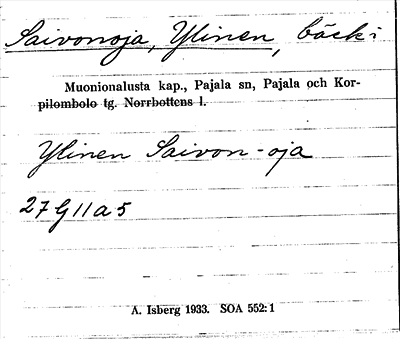 Saivonoja, Ylinen, bäck i
Muonionalusta kap., Pajala sn, Pajala och Kor-
pilombolo tg. Norrbottens l.
Ylinen Saivon-oja
27 G 11 a 5
A. Isberg 1933. SOA 552:1